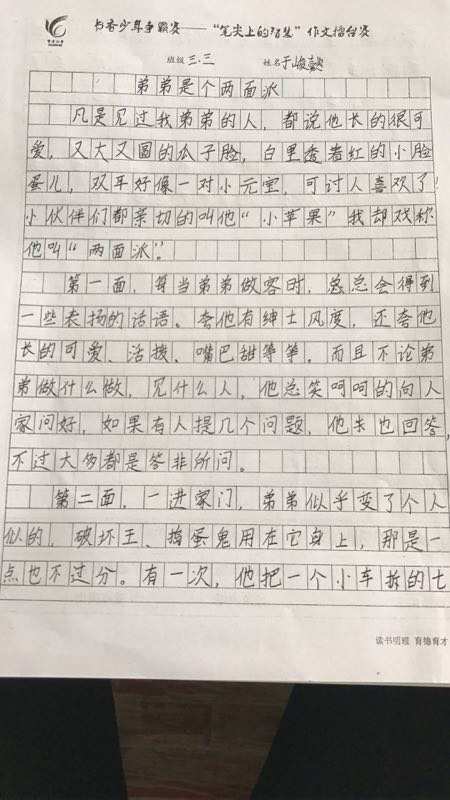 书香少年争霸赛——“笔尖上的智慧”作文擂台赛
班级 三.三 姓名 于峻懿
弟弟是个两面派
凡是见过我弟弟的人，都说他长的很可
爱，又大又圆的瓜子脸，白里透着红的小脸
蛋儿，双耳好像一对小元宝，可讨人喜欢了！
小伙伴们都亲切的叫他“小苹果”我却戏称
他叫“两面派”。
第一面，每当弟弟做客时，总总会得到
一些表扬的话语。夸他有绅士风度，还夸他
长的可爱、活拨、嘴巴甜等等。而且不论弟
弟做什么做，见什么人，他总笑呵呵的向人
家问好，如果有人提几个问题，他也回答，
不过大多都是答非所问。
第二面，一进家门，弟弟似乎变了个人
似的，破坏王、捣蛋鬼用在它身上，那是一
点也不过分。有一次，他把一个小车拆的七
读书明理 育德育才